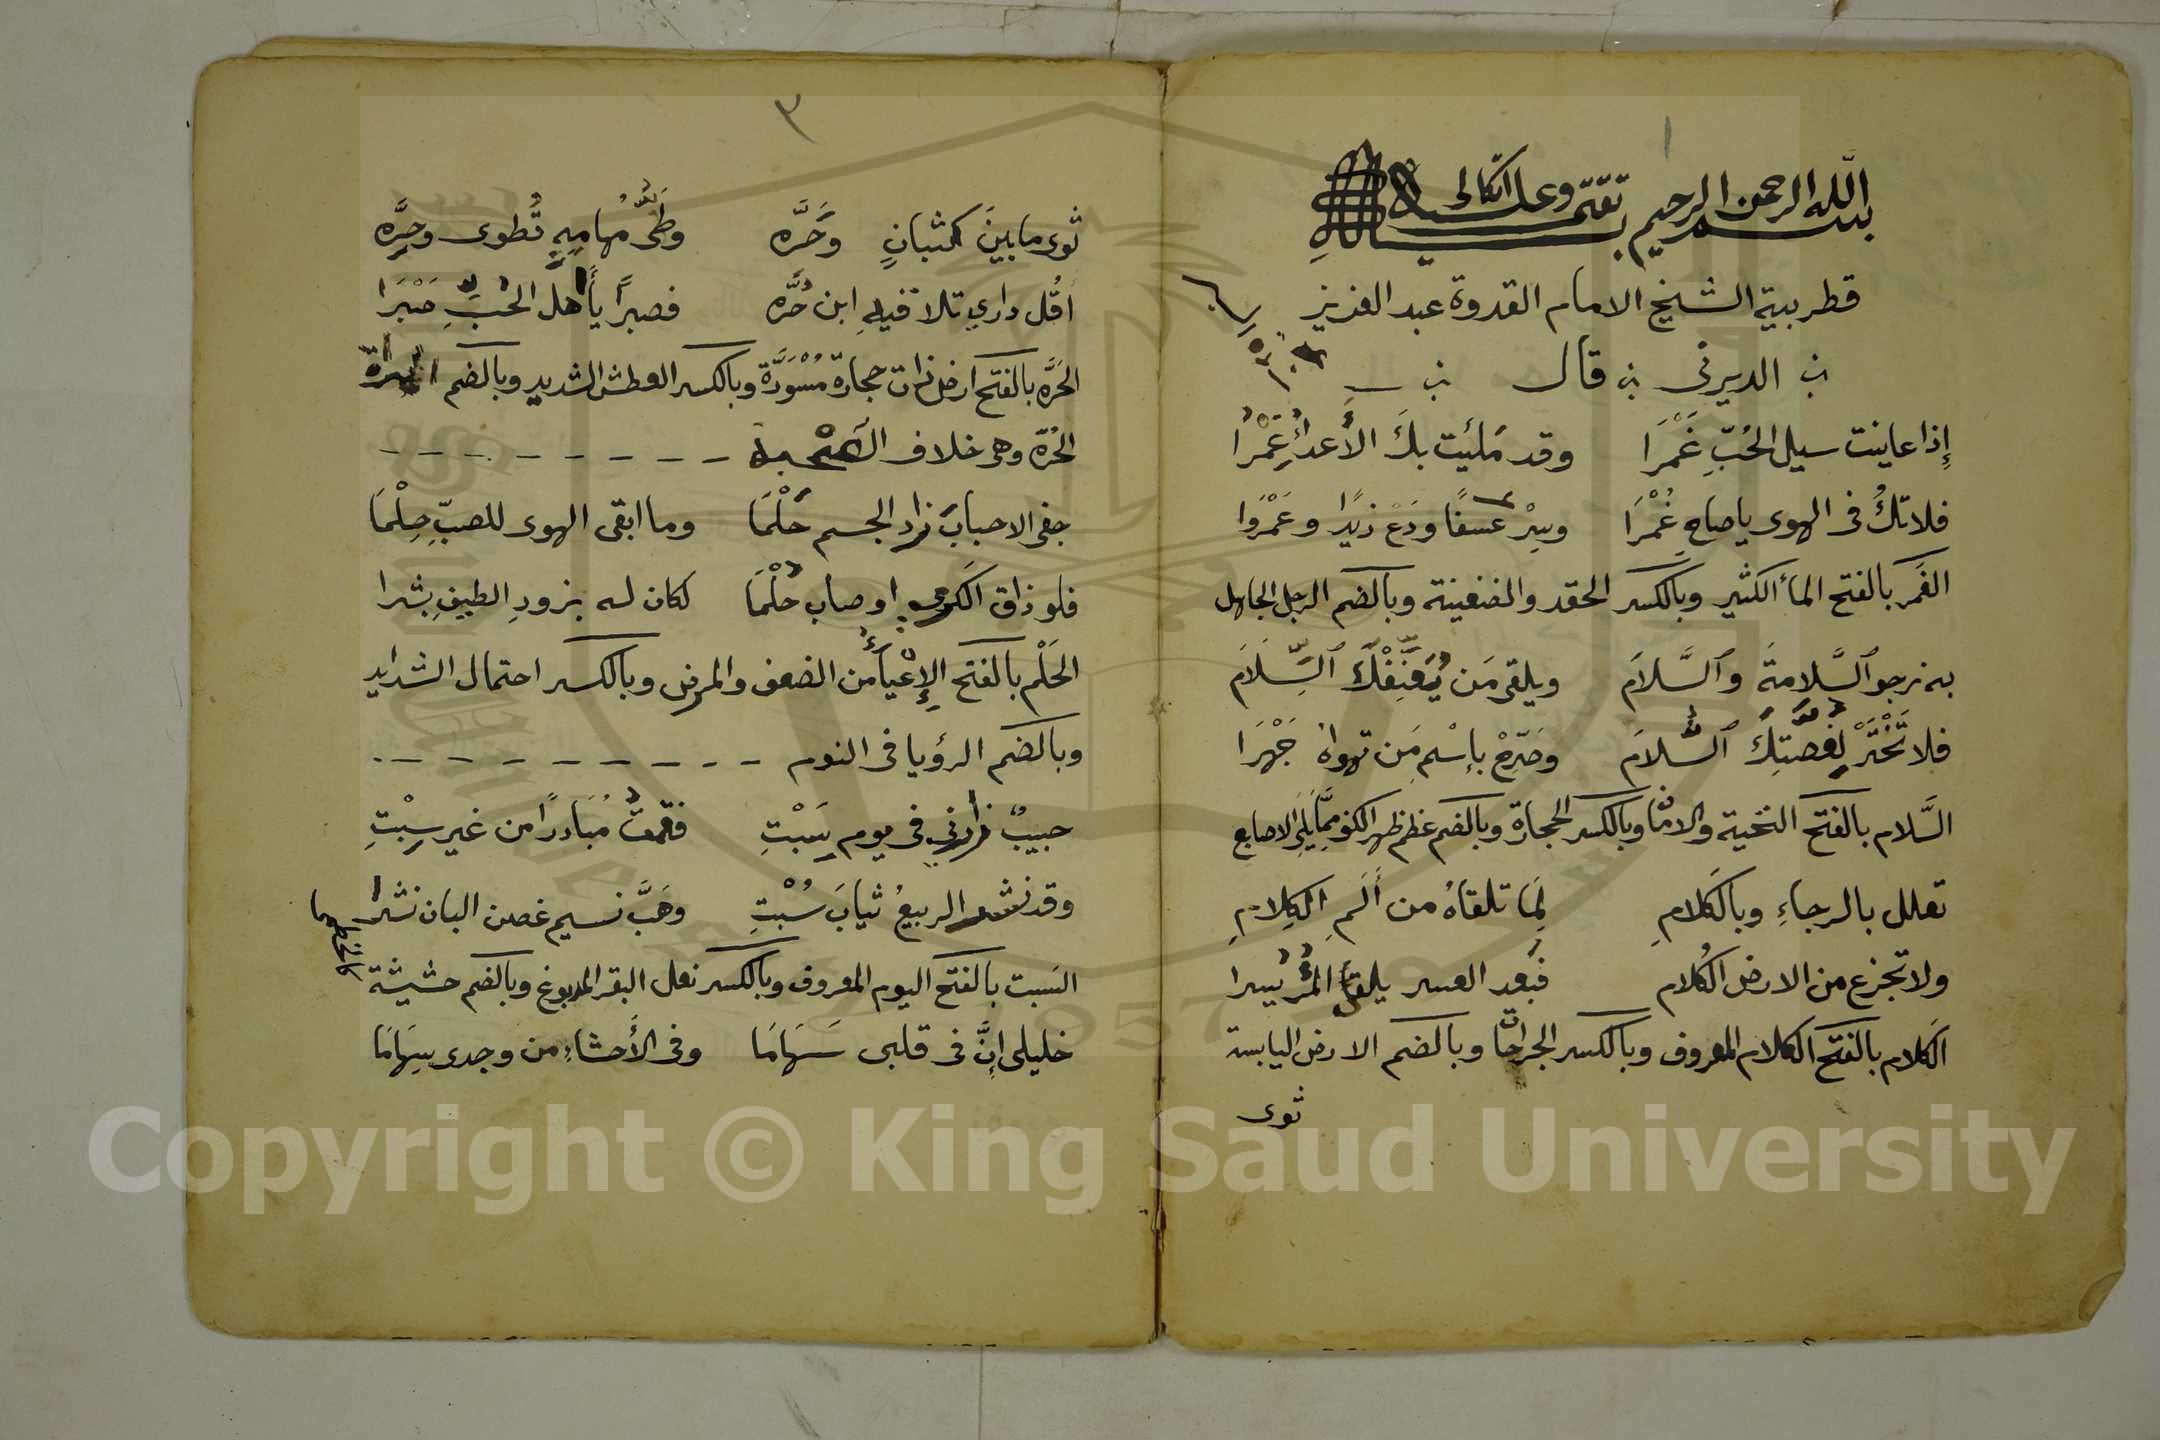 ١
بسم الله الرحمن الرحيم ثقتي وعليه اتكالي
قطربية الشيخ الامام القدوة عبد العزيز
الديرني قال
إذا عاينت سيل الحُبِّ غَمْرَا وقد مَلئيت بكَ الأعداءُ غِمْرُا
فلا تكُ في الهوى ياصاح غُمْرَا وسِرْ عسفًا ودَعْ زيدًا وعَمْرَوا
الغَمر بالفتح المأ الكثير وبالكسر الحقد والضغينة وبالضم الرجل الجاهل
به نرجو ٱلسَّلامةَ وٱلسَّلاَم ويلقى مَن يُعَنِّفْكَ ٱلسِّلاَم
فلا تَخْتَرْ لِغصّتِكَ ٱلسُّلاَم وصَرِحْ بإسْمِ مَن تهواهُ جَهْرَا
السَّلام بالفتح التحية والامان وبالكسر الحجارة وبالضم عظم ظهر الكف ممَّا يَلِى الاصابع
تعلل بالرجاءِ وبالكَلامِ لِمَا تلقاهُ من أَلَمِ الكِلامِ
ولا تجزع من الارض الكُلام فبَعد العسر يلقى المُرْءُ يُسرا
الكَلام بالفتح الكلام المعروف وبالكسر الجراحات وبالضم الارض اليابسة
ثوى
٣
ثوى ما بينَ كثبانٍ وحَرَّه وطَىُّ مهامِهٍ تُطوى وحِرَّه
أقُل داري تلاقيهِ ابن حُرَّه فصبرًا يأهل الحُبِّ صَبْرَا
الحَرَّه بالفتح ارض ذات حجارة مُسْوَدَّة وبالكسر العطش الشديد وبالضم
الحُرَّة وهى خلاف
جفى الاحباب زاد الجسم حَلْمَا وما ابقى الهوى للصبِّ حِلْمَا
فلو ذاق الكَرى او صاب حُلْمَا لكان له بزورِ الطيفِ بشرا
الحَلْم بالفتح الإعْيَاءُ من الضعف والمرض وبالكسر احتمال الشدايد
وبالضم الرؤيا فى النوم
حبيبٌ زارني في يوم سَبْتِ فقمتُ مُبَادرًا من غير سِبْتِ
وقد نشر الربيعُ ثيابَ سُبْتِ وهَبَّ نسيم غصن البان نشرا
السَبت بالفتح اليوم المعروف وبالكسر نعل البقر المدبوغ وبالضم حشيشة
خليلى إنَّ فى قلبى سَهَامَا وفى الأحشاءِ من وجدى سِهَامَا
Copyright © King Saud University
1957